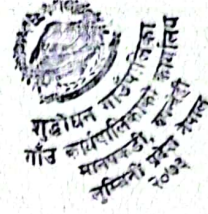 शुद्धोधन गाउँपालिका
गाँउ कार्यपालिकाको कार्यालय
मानपकडी, रुपन्देही
लुम्बिनी प्रदेश नेपाल
२०७३